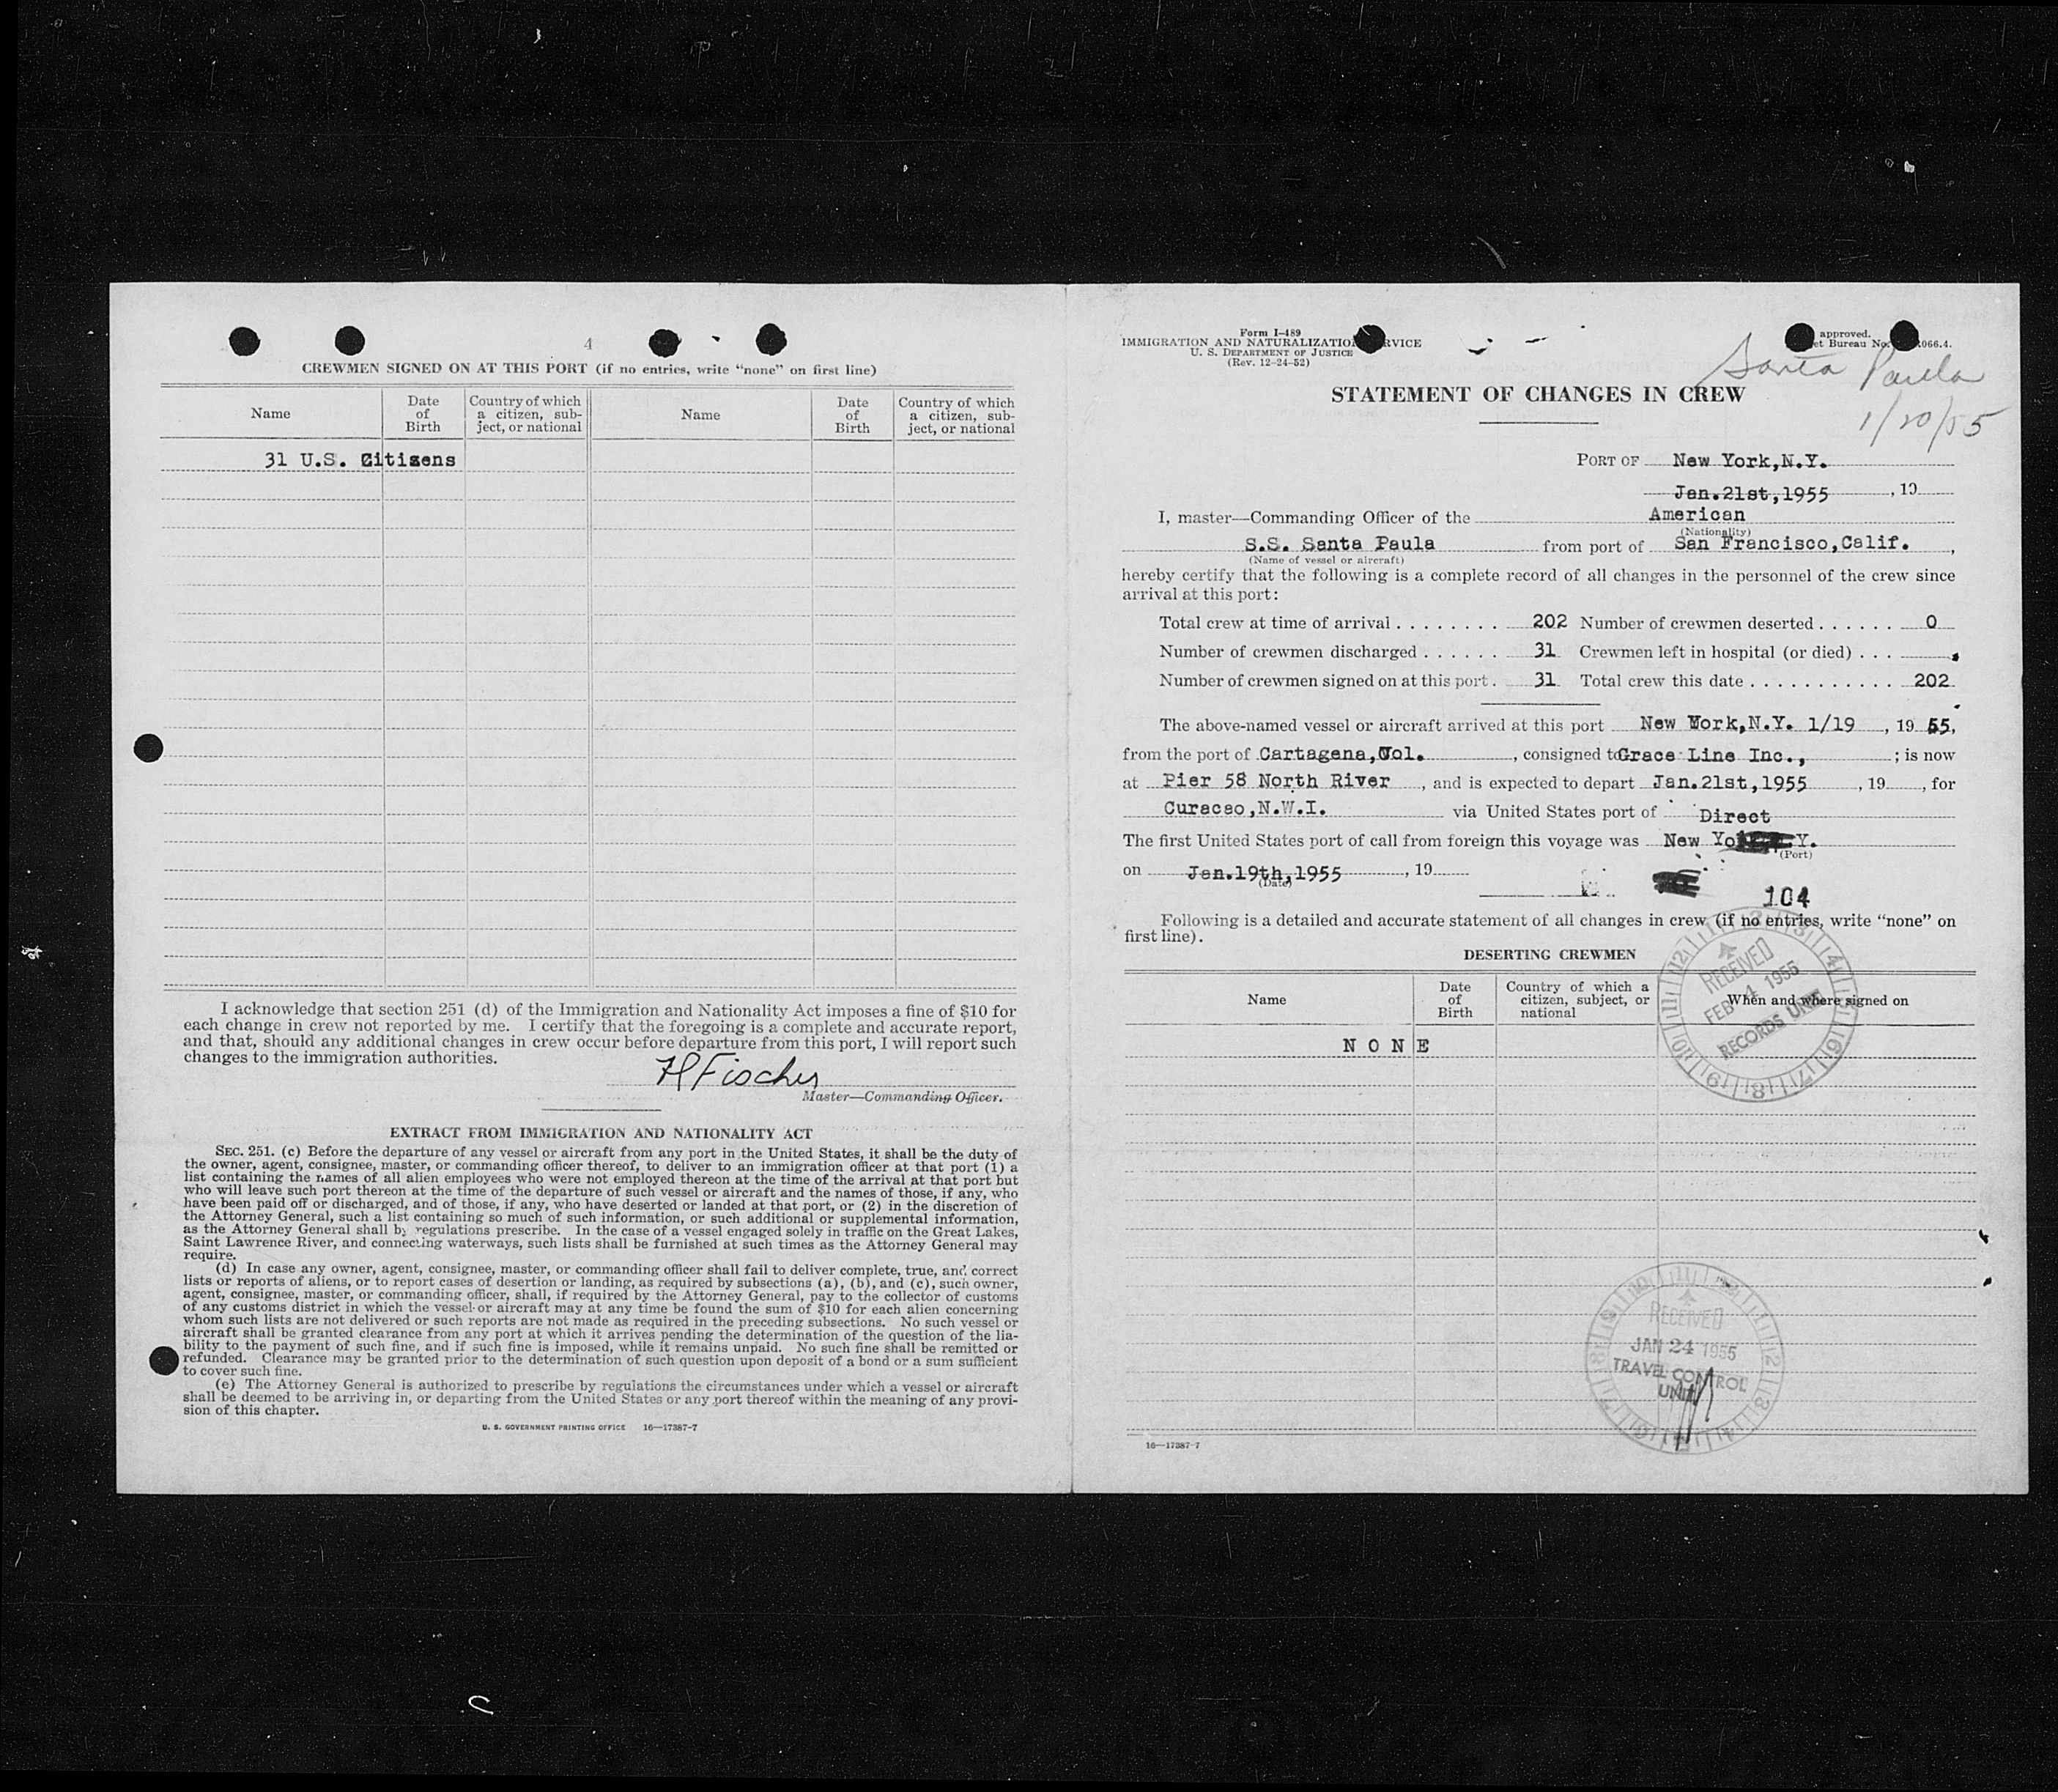 4
CREWMEN SIGNED ON AT THIS PORT (if no entries, write “none” on first line)
Name
Date of Birth
Country of which a citizen, sub-ject, or national
Name
Date of Birth
Country of which a citizen, sub-ject, or national
31 U.S. Citizens
I acknowledge that section 251 (d) of the Immigration and Nationality Act imposes a fine of $10 for
each change in crew not reported by me. I certify that the foregoing is a complete and accurate report,
and that, should any additional changes in crew occur before departure from this port, I will report such
changes to the immigration authorities.
H Fischer
Master—Commanding Officer.
EXTRACT FROM IMMIGRATION AND NATIONALITY ACT
SEC. 251. (c) Before the departure of any vessel or aircraft from any port in the United States, it shall be the duty of
the owner, agent, consignee, master, or commanding officer thereof, to deliver to an immigration officer at that port (1) a
list containing the names of all alien employees who were not employed thereon at the time of the arrival at that port but
who will leave such port thereon at the time of the departure of such vessel or aircraft and the names of those, if any, who
have been paid off or discharged, and of those, if any, who have deserted or landed at that port, or (2) in the discretion of
the Attorney General, such a list containing so much of such information, or such additional or supplemental information,
as the Attorney General shall by regulations prescribe. In the case of a vessel engaged solely in traffic on the Great Lakes,
Saint Lawrence River, and connecting waterways, such lists shall be furnished at such times as the Attorney General may
require.
(d) In case any owner, agent, consignee, master, or commanding officer shall fail to deliver complete, true, and correct
lists or reports of aliens, or to report cases of desertion or landing, as required by subsections (a), (b), and (c), such owner,
agent, consignee, master, or commanding officer, shall, if required by the Attorney General, pay to the collector of customs
of any customs district in which the vessel or aircraft may at any time be found the sum of $10 for each alien concerning
whom such lists are not delivered or such reports are not made as required in the preceding subsections. No such vessel or
aircraft shall be granted clearance from any port at which it arrives pending the determination of the question of the lia-
bility to the payment of such fine, and if such fine is imposed, while it remains unpaid. No such fine shall be remitted or
refunded. Clearance may be granted prior to the determination of such question upon deposit of a bond or a sum sufficient
to cover such fine.
(e) The Attorney General is authorized to prescribe by regulations the circumstances under which a vessel or aircraft
shall be deemed to be arriving in, or departing from the United States or any port thereof within the meaning of any provi-
sion of this chapter.
U. S. GOVERNMENT PRINTING OFFICE 16—17387-7
Form I-489
IMMIGRATION AND NATURALIZATION SERVICE
U. S. DEPARTMENT OF JUSTICE
(Rev. 12-24-52)
approved.
Bureau No. 066.4.
Santa Paula
1/20/55
STATEMENT OF CHANGES IN CREW
PORT OF New York,N.Y.
Jan.21st,1955, 19
I, master—Commanding Officer of the American
(Nationality)
S.S. Santa Paula from port of San Francisco,Calif.,
(Name of vessel or aircraft)
hereby certify that the following is a complete record of all changes in the personnel of the crew since
arrival at this port:
Total crew at time of arrival . . . . . . . . 202 Number of crewmen deserted . . . . . . 0
Number of crewmen discharged . . . . . . 31 Crewmen left in hospital (or died) . . .
Number of crewmen signed on at this port . 31 Total crew this date . . . . . . . . . . . 202
The above-named vessel or aircraft arrived at this port New York,N.Y. 1/19, 19 55,
from the port of Cartagena,Col., consigned to Grace Line Inc., ; is now
at Pier 58 North River, and is expected to depart Jan.21st,1955, 19, for
Curacao,N.W.I. via United States port of Direct
The first United States port of call from foreign this voyage was New Yo Y.
(Port)
on Jan.19th,1955, 19
(Date)
104
Following is a detailed and accurate statement of all changes in crew (if no entries, write “none” on
first line).
DESERTING CREWMEN
Name
Date of Birth
Country of which a citizen, subject, or national
When and where signed on
NONE
RECEIVED
FEB 4 1955
RECORDS UNIT
RECEIVED
JAN 24 1955
TRAVEL CONTROL
UNIT
16—17387-7